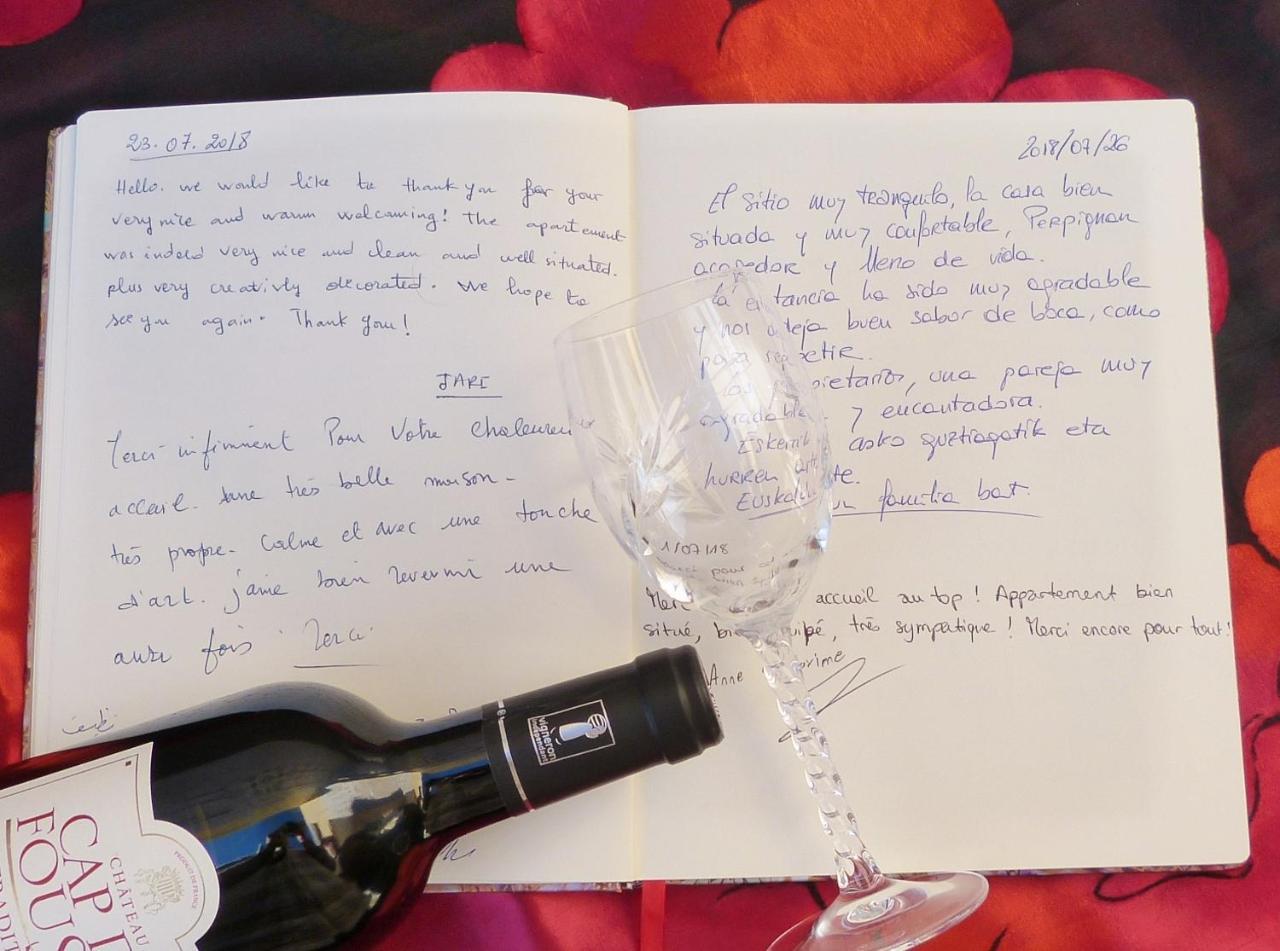 23.07.2018
Hello. we would like to thank you for your
very nice and warm welcoming! the apartement
was indeed very nice and clean and well situated.
plus very creativly decorated. We hope to
see you again. Thank you!
JARI
Merci infiniment Pour Votre chaleureux
acceil. Une très belle maison -
très propre. Calme et avec une touche
d'art. j'aime bien revenir une
autre fois. Merci
2018/07/26
El sitio muy tranquilo, la casa bien
situada y muy confortable, Perpignan
acogedor y lleno de vida.
La estancia ha sido muy agradable
y nos deja buen sabor de boca, como
para repetir.
Los propietarios, una pareja muy
agradable y encantadora.
Eskerrik asko guztiagatik eta
hurren arte.
familia bat.
1/07/18
pour
Merci accueil au top! Appartement bien
situé, bien équipé, très sympatique! Merci encore pour tout!
Anne
vigneron
indépendant
CHÂTEAU
CAP
FOUS
PRODUCT OF FRANCE